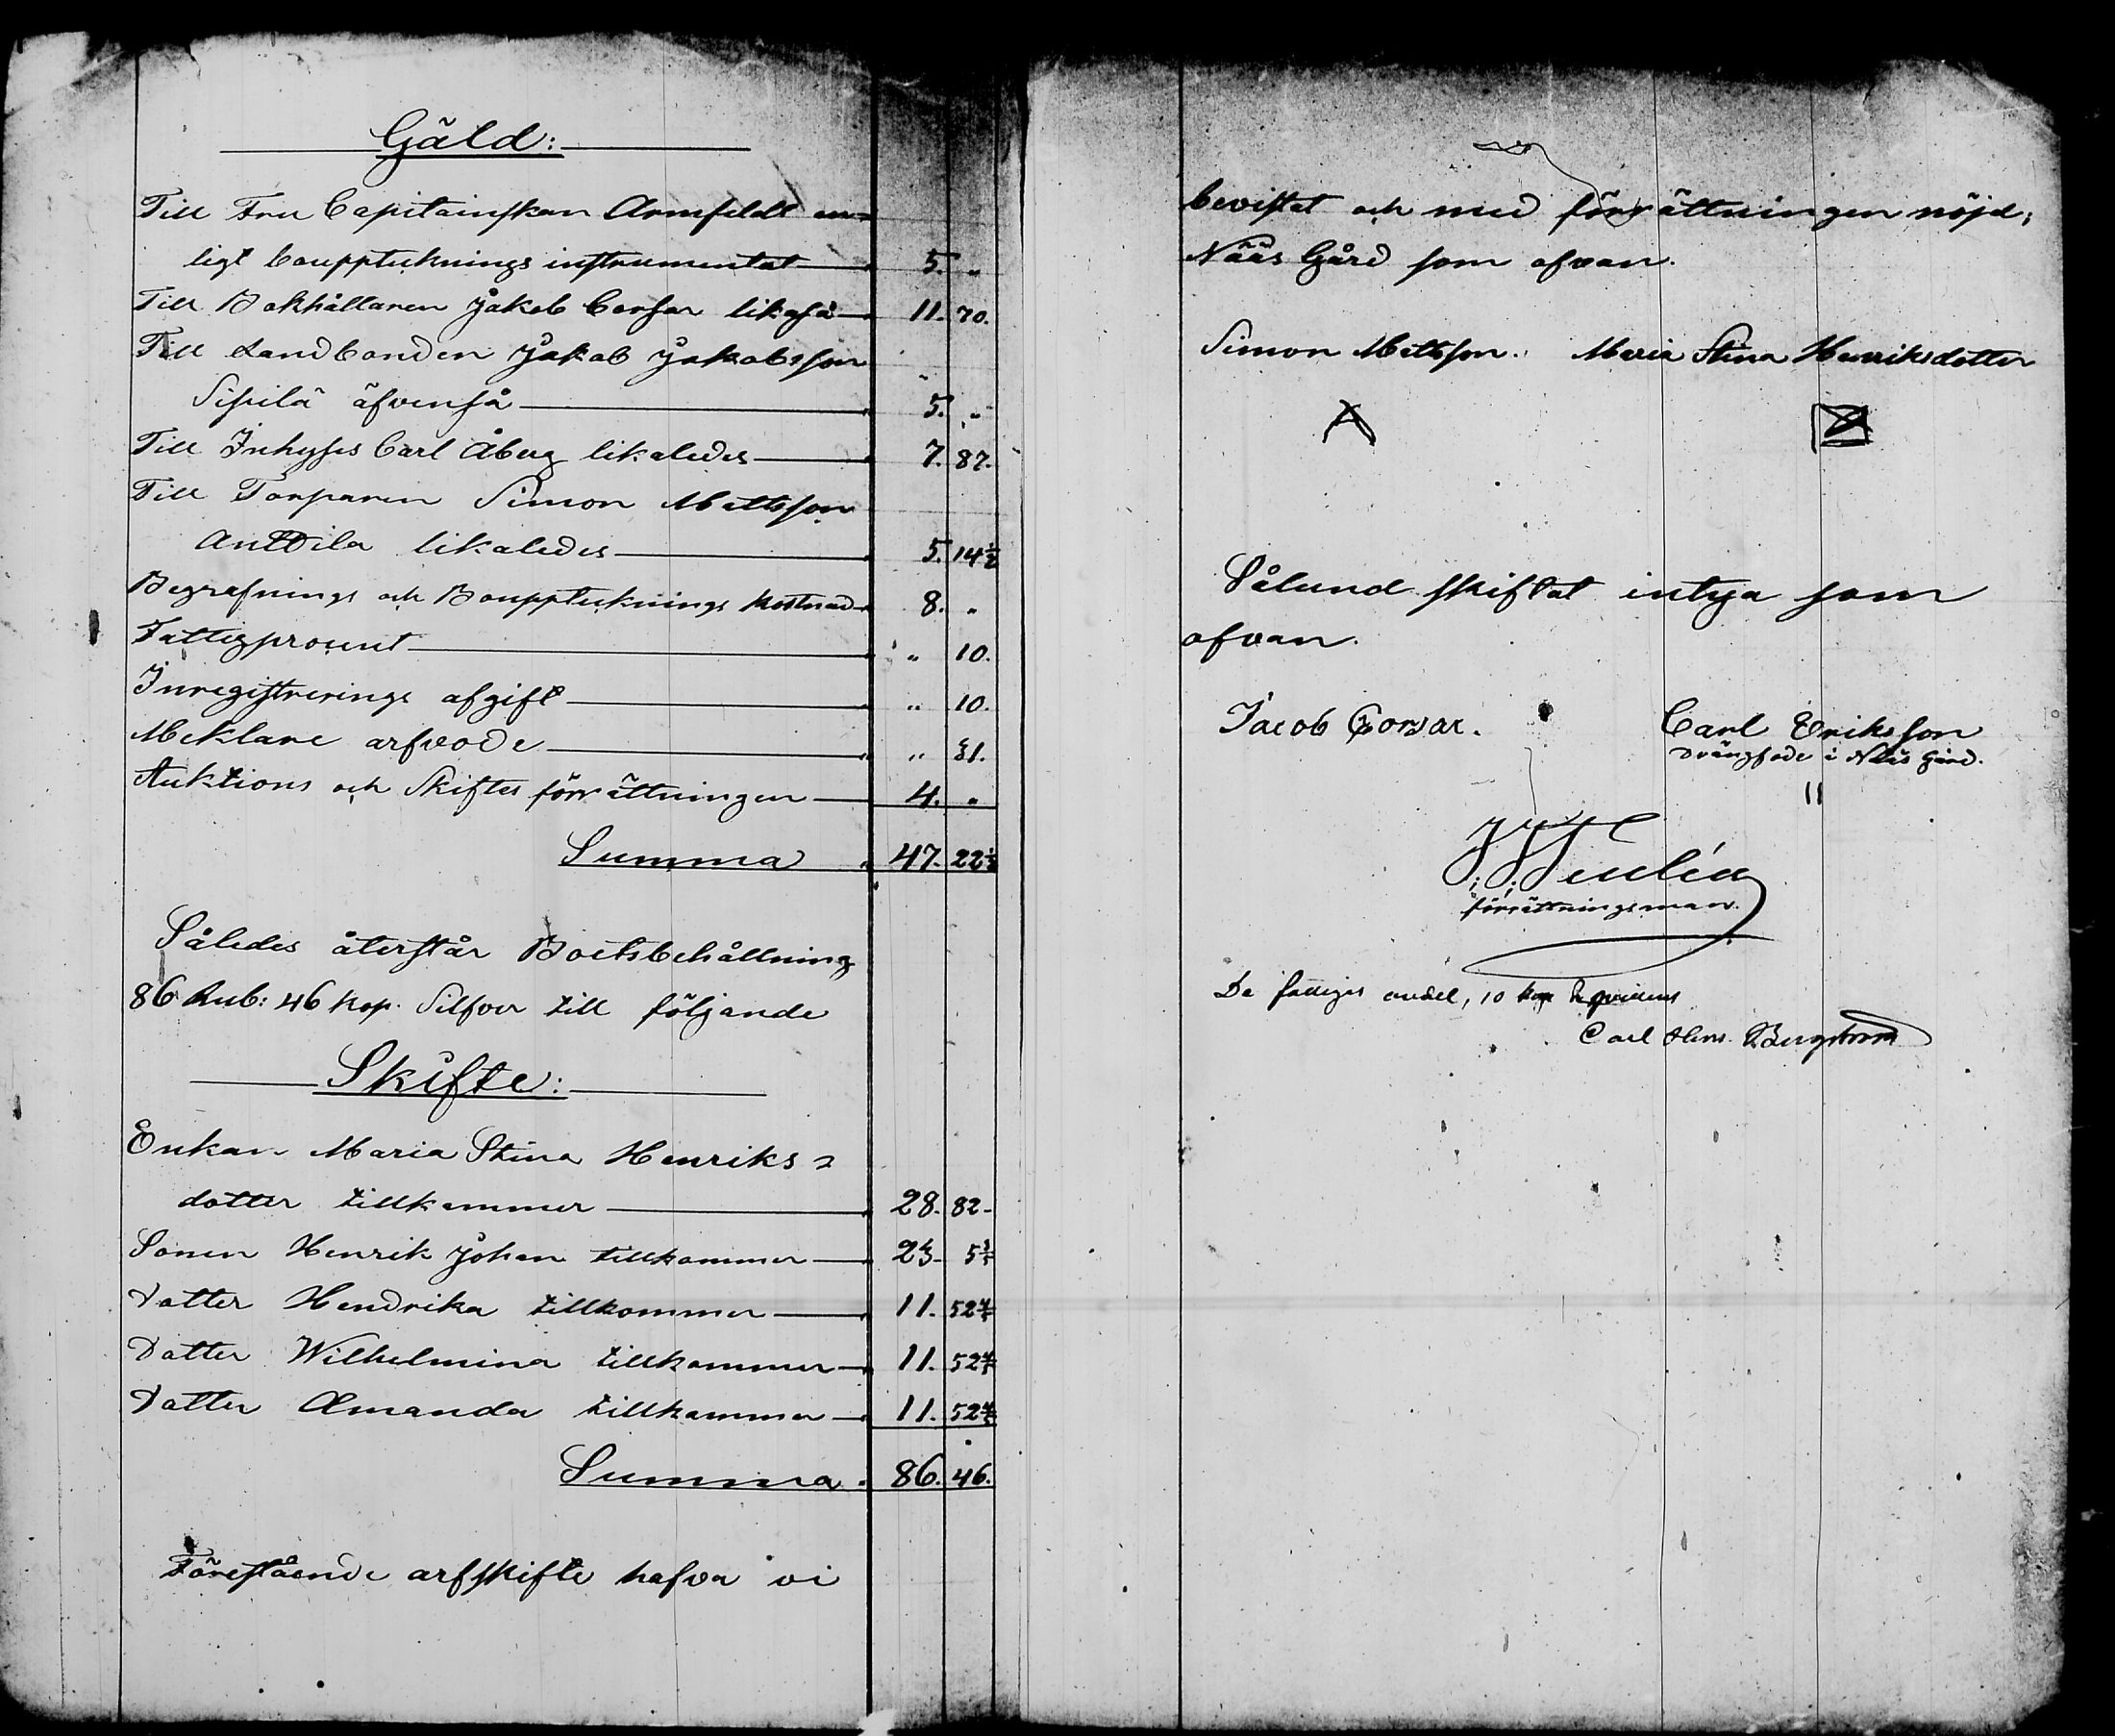 Gäld:
Till Fru Capitainskan Armfeldt en-
ligt bouppteknings instrumentet 5. "
Till Bokhållaren Jakob Corsar likaså 11. 70.
Till Landbonden Jakob Jakobsson
Sipilä äfvenså 5. "
Till Inhyses Carl Åberg likaledes 7. 87.
Till Torparen Simon Mattsson
Anttila likaledes 5. 14½
Begrafnings och Bouppteknings kostnad 8. "
Fattigprocent " 10.
Inregistrerings afgift " 10.
Meklare arfvode " 31.
Auktions och Skiftes förrättningen 4. "
Summa 47. 22½
Således återstår Boetsbehållning
86 Rub: 46 kop. Silfver till följande
Skifte:
Enkan Maria Stina Henriks-
dotter tillkommer 28. 82-
Sonen Henrik Johan tillkommer 23- 5⅗
Dotter Hendrika tillkommer 11. 52⅘
Dotter Wilhelmina tillkommer 11. 52⅘
Dotter Amanda tillkommer 11. 52⅘
Summa. 86. 46.
Förestående arfskifte hafva vi
bevistat och med förrättningen nöjd;
Nääs Gård som ofvan.
Simon Mattsson. Maria Stina Henriksdotter
Sålund skiftat intyga som
ofvan.
Jacob Corsar. Carl Eriksson
Drängfode i Nääs Gård.
förrättningsman.
De fattiges andel, 10 kop qvitteras
Carl Henr. Bergstrom